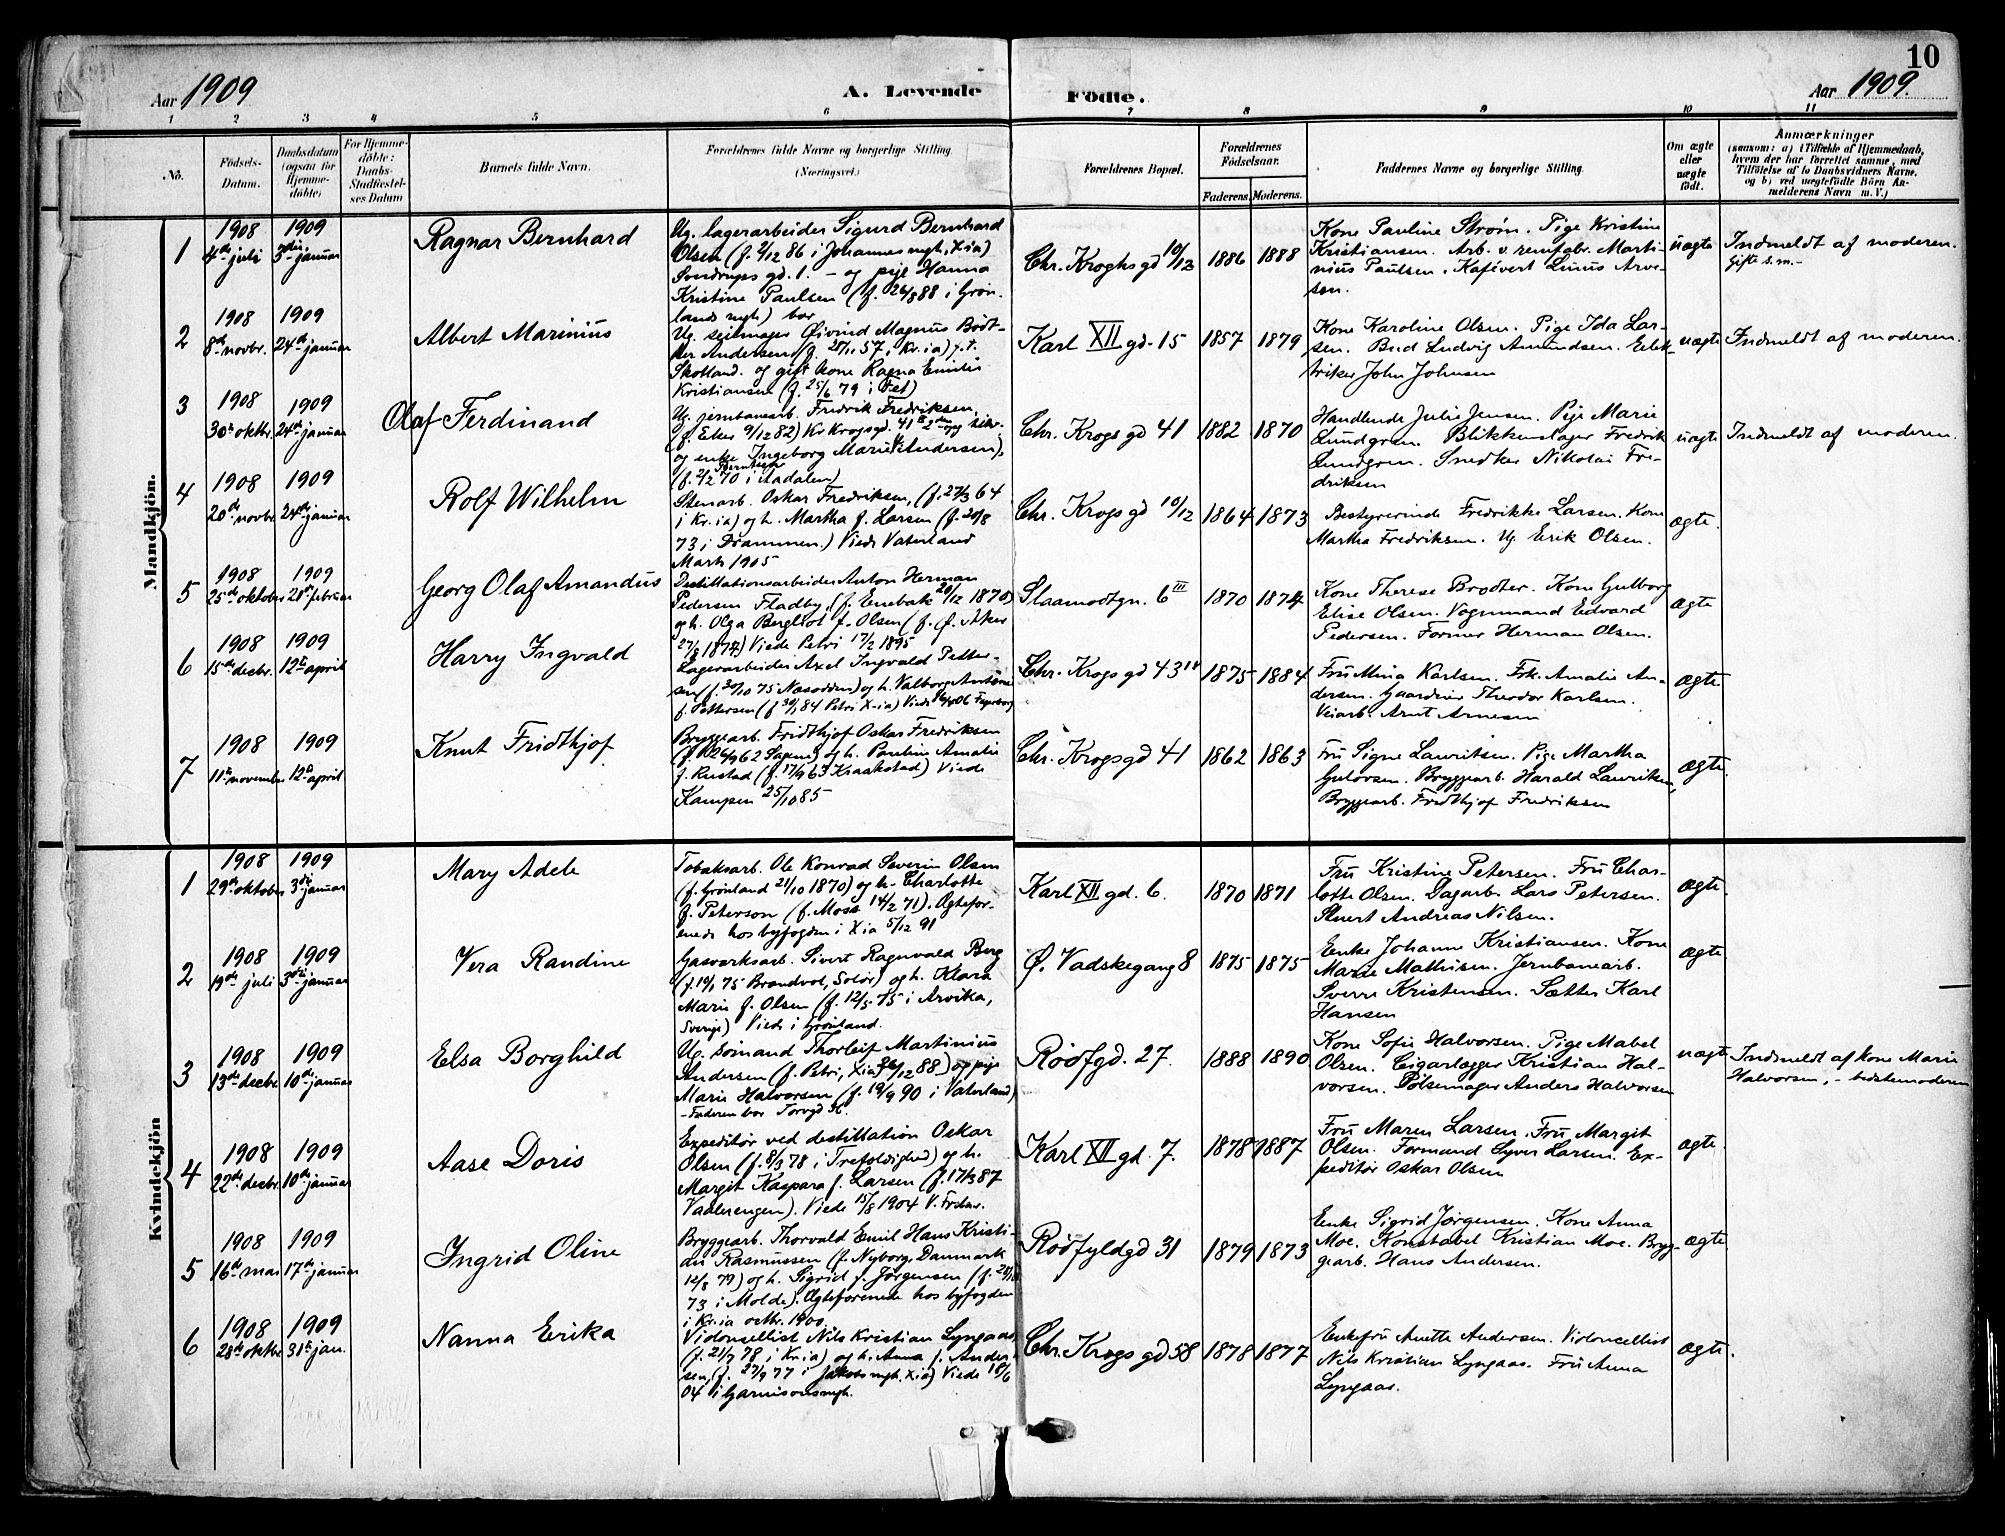 10
Aar 1909
A. Levende
Födte.
Aar 1909.
1 2 3 4 5 6 7 8 9 10 11
No.
Födsels-
Datum.
Daabsdatum
(ogsaa for
Hjemme-
döbte)
For Hjemme-
döbte:
Daabs-
Stadfæstel-
ses Datum
Barnets fulde Navn.
Forældrenes fulde Navne og borgerlige Stilling
(Næringsvei.)
Forældrenes Bopæl.
Forældrenes
Födselsaar.
Faderens. Moderens.
Faddernes Navne og borgerlige Stilling.
Om ægte
eller
uægte
födt.
Anmærkninger
(saasom: a) i Tilfælde af Hjemmedaab,
hvem der har forrettet samme, med
Tilföielse af to Daabsvidners Navne,
og b) ved uægtefödte Börn An-
melderens Navn m. V.)
Mandkjön.
1
1908
4de juli
1909
3die januar
Ragnar Bernhard
Ug. lagerarbeider Sigurd Bernhard
Olsen (f. 2/12 86 i Johannes mgh, X.ia)
gd. 1. – og pige Hanna
Kristine Paulsen (f. 26/8 88 i Grøn-
lands mgh) bor
Chr. Kroghs gd 10/12
1886
1888
Kone Pauline Strøm. Pige Kristine
Kristiansen. Arb. v. remfabr. Marti-
nius Paulsen. Kafévert Linus Arve-
sen.
uægte
Indmeldt af moderen.
Gifte s.m.–
2
1908
8de novbr.
1909
24de januar
Albert Marinius
Ug. seilmager Øivind Magnus Bødt-
ker Andersen (f. 28/11 57, i Kr.ia) p.t.
Skotland. og gift kone Ragna Emilie
Kristiansen (f. 25/6 79 i Fet)
Karl XII gd. 15
1857
1879
Kone Karoline Olsen. Pige Ida Lar-
sen. Bud Ludvig Amundsen. Elek-
triker John Johnsen
uægte
Indmeldt af moderen.
3
1908
30te oktbr.
1909
24de januar
Olaf Ferdinand
Ug. jernbanearb. Fredrik Fredriksen,
(f. Eker 9/12 82) Kr Krogsgd. 41
og enke Ingeborg Marie Andersen,
Berntsen
(f. 2/2 70 i Aadalen)
Chr. Krogs gd 41
1882
1870
Handlende Julie Jensen. Pige Marie
Lundgren. Blikkenslager Fredrik
Lundgren. Snedker Nikolai Fre-
driksen
uægte
Indmeldt af moderen.
4
1908
20de novbr.
1909
24de januar
Rolf Wilhelm
Stenarb. Oskar Fredriksen, (f. 27/3 64
i Kr.ia) og h. Martha f. Larsen (f. 20/8
73 i Drammen.) Viede Vaterland
Marts 1905
Chr. Krogs gd 10/12
1864
1873
Bestyrerinde Fredrikke Larsen. Kone
Martha Fredriksen. Ug. Erik Olsen.
ægte.
5
1908
25de oktober
1909
28de februar
Georg Olaf Amandus
Destillationsarbeider Anton Herman
Pedersen Fladby, (f. Enebak 20/12 1870)
og h. Olga Bergliot f. Olsen (f. Ø. Aker
27/8 1874) Viede Petri 17/2 1895
Slaamotgn. 6 III
1870
1874
Kone Therese Brodter. Kone Gulborg
Elise Olsen. Vognmand Edvard
Pedersen. Former Herman Olsen.
ægte
6
1908
15de decbr.
1909
12te april
Harry Ingvald
Lagerarbeider Axel Ingvald Petter-
sen (f. 30/10 75 Næsodden) og h. Valborg Antonie
f. Pettersen (f 30/1 84 Petri X-ia) Viede
Chr. Krogs gd 43
1875
1884
Fru Mina Karlsen. Frk. Amalie An-
dersen. Gaardeier Theodor Karlsen.
Veiarb. Arnt Arnesen
ægte
7
1908
11te november
1909
12te april
Knut Fridthjof
Bryggearb. Fridthjof Oskar Fredriksen
(f. 26/9 62 Sagene) og h. Pauline Amalie
f. Rustad (f. 17/9 63 Kraakstad) Viede
Kampen 25/10 85
Chr. Krogsgd 41
1862
1863
Fru Signe Lauritsen. Pige Martha
Gulovsen. Bryggearb. Harald Lauritsen,
Bryggearb. Fridthjof Fredriksen
ægte.
Kvindekjön
1
1908
29de oktober
1909
3die januar
Mary Adele
Tobaksarb. Ole Konrad Severin Olsen
(f. Grønland 21/10 1870) og h. Charlotte
f. Peterson (f. Moss 14/2 71). Ægtefor-
enede hos byfogden i X.ia 5/12 91
Karl XII gd. 6.
1870
1871
Fru Kristine Petersen. Fru Char-
lotte Olsen. Dagarb. Lars Petersen.
Stuert Andreas Nilsen.
ægte.
2
1908
19de juli
1909
3die januar
Vera Randine
Gasværksarb. Sivert Ragnvald Berg
(f. 19/1 75 Brandvol, Solør) og h. Klara
Marie f. Olsen (f. 12/5 75 i Arvika,
Sverige) Viede i Grønland.
Ø. Vadskegang 8
1875
1875
Enke Johanne Kristiansen. Kone
Marie Mathisen. Jernbanearb.
Sverre Kristensen. Sætter Karl
Hansen
ægte
3
1908
13de decbr
1909
10de januar
Elsa Borghild
Ug. sømand Thorleif Martinius
Andersen (f. Petri, X.ia 26/12 88) og pige
Marie Halvorsen (f. 19/9 90 i Vaterland)
– Faderen bor Torvgd 36.
Rødfgd. 27.
1888
1890
Kone Sofie Halvorsen. Pige Mabel
Olsen. Cigarlægger Kristian Hal-
vorsen. Pølsemager Anders Halvorsen
uægte
Indmeldt af kone Marie
Halvorsen, – bedstemoderen
4
1908
22de decbr.
1909
10de januar
Aase Doris
Expeditør ved destillation Oskar
Olsen (f. 8/3 78 i Trefoldighed) og h.
Margit Kaspara f. Larsen (f. 17/3 87
Vaalerengen). Viede 15/8 1904 V. Frelser.
Karl XII gd. 7.
1878
1887
Fru Maren Larsen. Fru Margit
Olsen. Formand Syver Larsen. Ex-
peditør Oskar Olsen
ægte.
5
1908
16de mai
1909
17de januar
Ingrid Oline
Bryggearb. Thorvald Emil Hans Kristi-
an Rasmussen (f. Nyborg, Danmark
12/8 79) og h. Sigrid f. Jørgensen (f. 28/10
73 i Molde). Ægteforenede hos byfogden
i Kr.ia octbr. 1900.
Rødfyldgd 31
1879
1873
Enke Sigrid Jørgensen. Kone Anna
Moe. Konstabel Kristian Moe. Bryg-
gearb. Hans Andersen.
ægte.
6
1908
28de oktbr
1909
31te jan.
Nanna Erika
Violoncellist Nils Kristian Lyngaas,
(f. 21/7 78 i Kr.ia) og h. Anna f. Ander-
sen, (f. 27/9 77 i Jakobs mgh. X.ia) Viede 18/6
04 i Garnisonsmgh.
Chr. Krogs gd 58
1878
1877
Enkefru Anette Andersen. Violoncellist
Nils Kristian Lyngaas. Fru Anna
Lyngaas.
ægte.